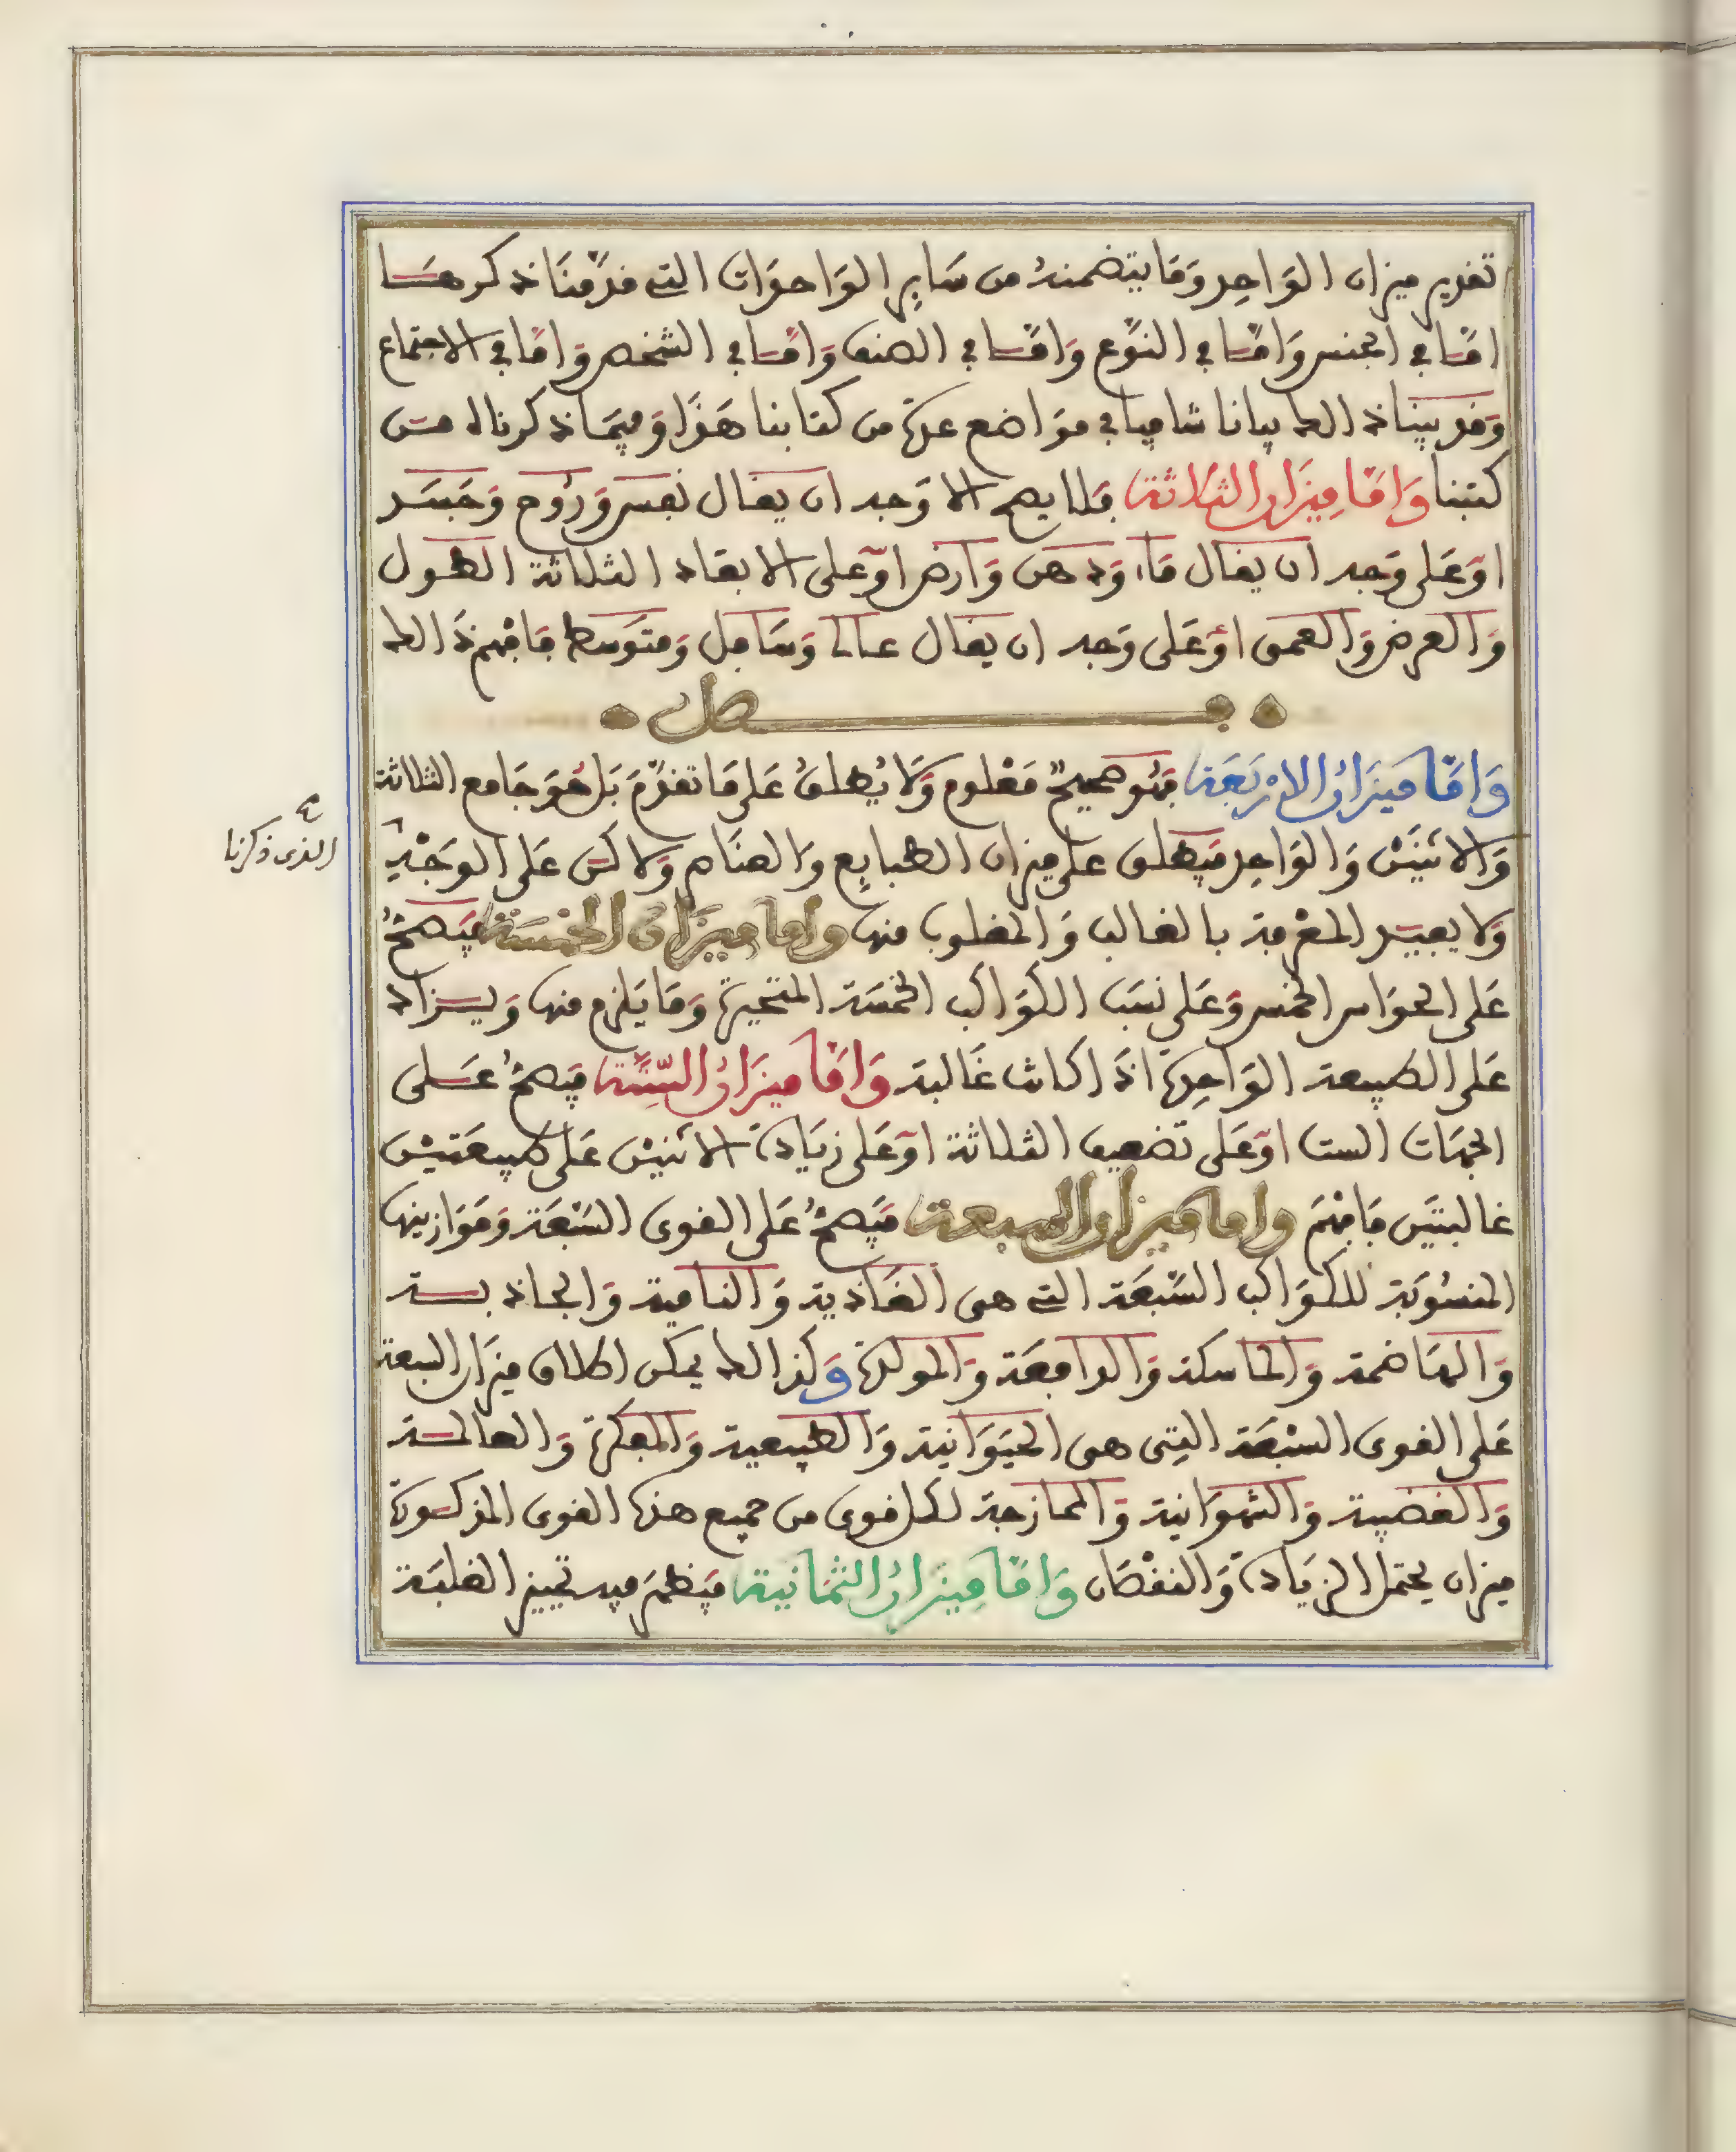 تقدير ميزان الوَاحِد وَمَا يتضمنهُ من سَاير الوَاحدَات التي قدّمنَا ذكرهَا
امّا في الجنس وَامّا في النوّع وَامّا في الصنف وَامّا في الشخص وَامّا في الاجتماع
وَقد بيّنا ذالك بيانا شافيا في موَاضع عدّة من كتابنا هَذَا وَفيمَا ذكرناه من
كتبنا وَامّا مِيزَان الثلاثة فلا يصح الا وَجه ان يقال نفس وَرُوح وَجَسَد
اوْ عَلى وَجه ان يقال مَاء وَدهن وَارض اوْ على الابعَاد الثلاثة الطول
وَالعرض وَالعمق اوْ عَلى وَجه ان يقال عال وَسَافل وَمتوَسط فافهم ذَالك
فصل
وَامّا مِيزَانُ الارْبَعَة فهُو صحيحٌ مَعْلوم وَلَا يُطلقُ عَلى مَا تقدّمَ بَل هُوَ جَامع الثلاثة
وَالاثنَيْن وَالوَاحِد فيطلق على ميزان الطبايع وَالعنَاصر وَلاكن عَلى الوَجْهِ
الذي ذكرنا
وَلا يفيد المعْرفة بالغالب وَالمغلوب منها واما ميزان الخمسَة فيَصحُّ
عَلى الحوَاس الخمس وَعَلى نسَب الكوَاكب الخمسَة المتحيرة وَمَا يَلزم منها وَيزاد
عَلى الطبيعة الوَاحِدة اذَا كانت غَالبة وَامَّا ميزَانُ السِّتَّة فيَصحُّ عَلى
الجهَات الست اوْ عَلى تضعيف الثلاثة اوْ عَلى زيَادة الاثنيْن عَلى طبيعَتيْن
غالبتيَن فافْهَم واما ميزان السبعة فيَصحُّ عَلى القوى السّبْعَة وَمَوَازينها
المنسُوبَة للكوَاكب السّبْعَة التي هي الغَاذية وَالنامية وَالجاذبة
وَالهَاضمة وَالماسكة وَالدافعَة وَالمولدة وَكذالك يمكن اطلاق ميزَان السبعة
عَلى القوى السّبْعَة التِي هي الحيَوَانية وَالطبيعية وَالمفكرة وَالعالمة
وَالغضبية وَالشهوَانية وَالممازجة لكل قوى من جميع هذه القوى المذكورة
ميزان يحتمل الزيَادة وَالنقْصَان وَامّا مِيزانُ الثمَانية فيَظهرَ فيه تمييز الغلبَة